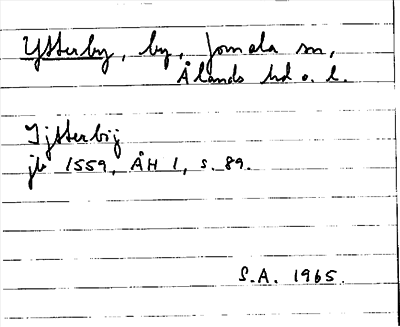 Ytterby, by, Jomala sn,
Ålands hd o. l.
Ijtterbij
jb 1559, ÅH 1, s. 89.
S.A. 1965.